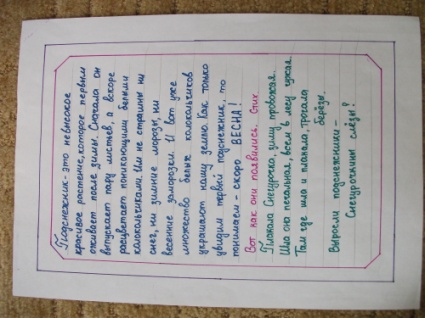 Подснежник - это невысокое
красивое растение, которое первым
оживает после зимы. Сначала он
выпускает пару листьев, а вскоре
расцветает поникающими белыми
колокольчиками. Им не страшны ни
снег, ни зимние морозы, ни
весенние заморозки. И вот уже
множество белых колокольчиков
украшают нашу землю. Как только
увидим первый подснежник, то
понимаем - скоро ВЕСНА!
Вот как они появились. Стих.
Плакала Снегурочка, зиму провожая.
Шла она печальная, всем в лесу чужая.
Там где шла и плакала, трогала
берёзы.
Выросли подснежники -
Снегурочкины слёзы?